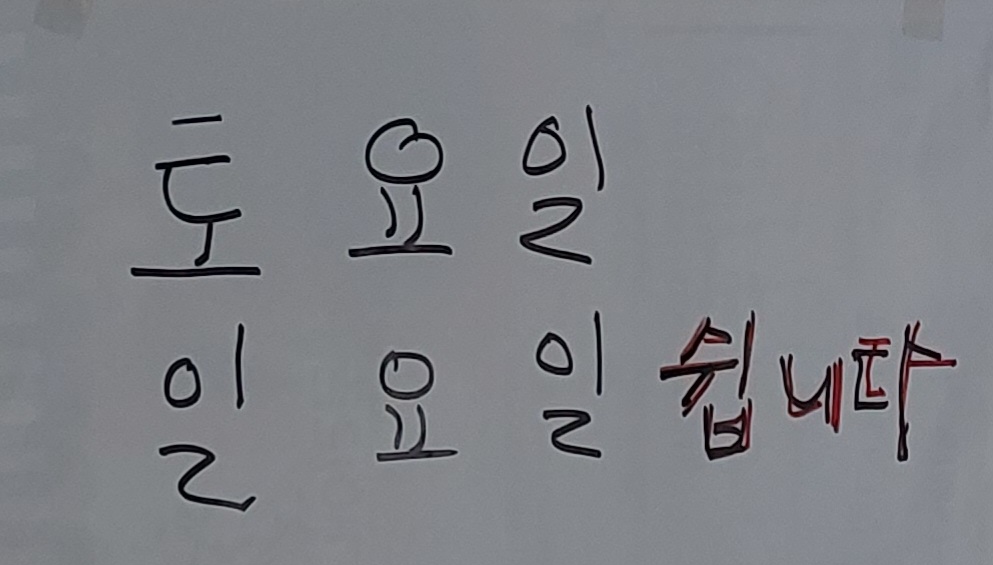 토요일
일요일 쉽니다